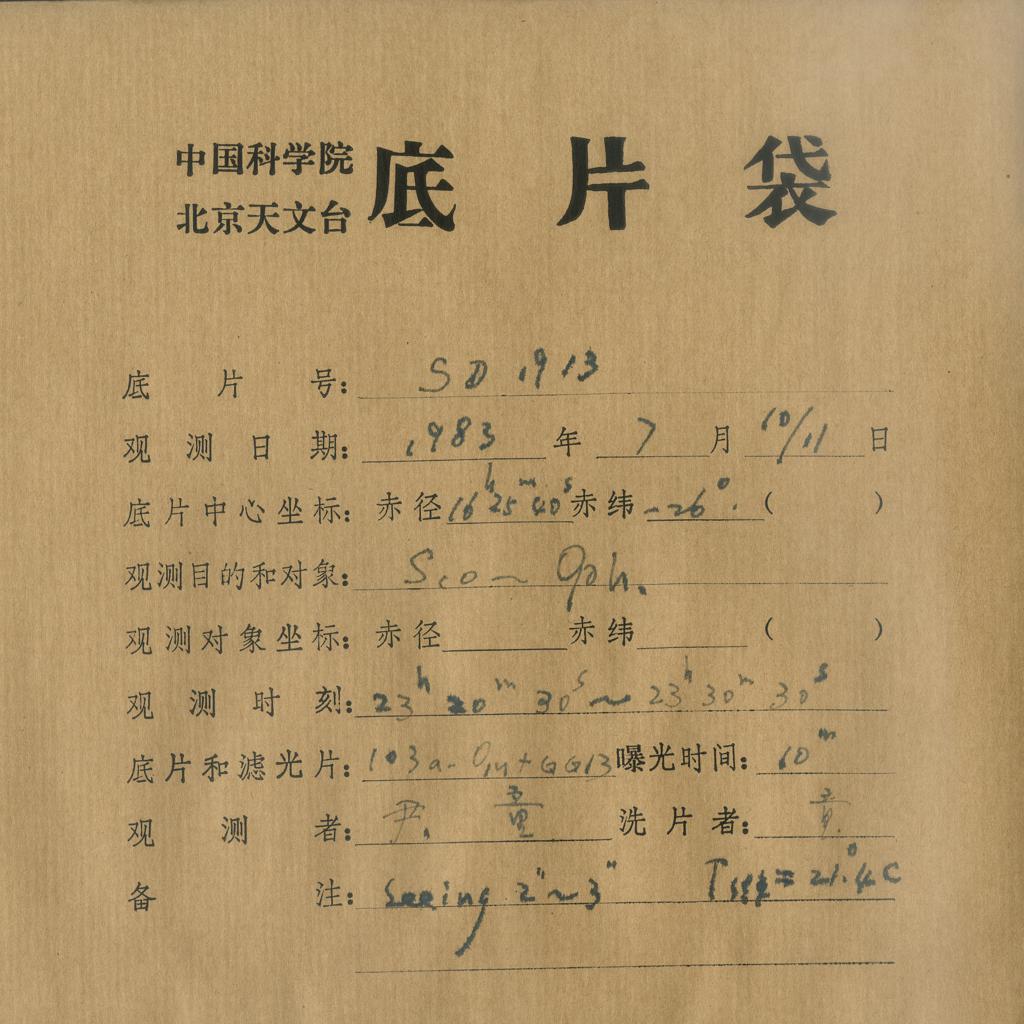 中国科学院
北京天文台
底片袋
底片号: SD 1913
观测日期: 1983 年 7 月 10/11 日
底片中心坐标: 赤径 16h 25m 40s 赤纬 -26°. ( )
观测目的和对象: Sco ~ Oph.
观测对象坐标: 赤径 赤纬 ( )
观测时刻: 23h 20m 30s ~ 23h 30m 30s
底片和滤光片: 103a-O + GG13 曝光时间: 10m
观测者: 尹. 洗片者:
备注: Seeing 2" ~ 3" = 21°.4C